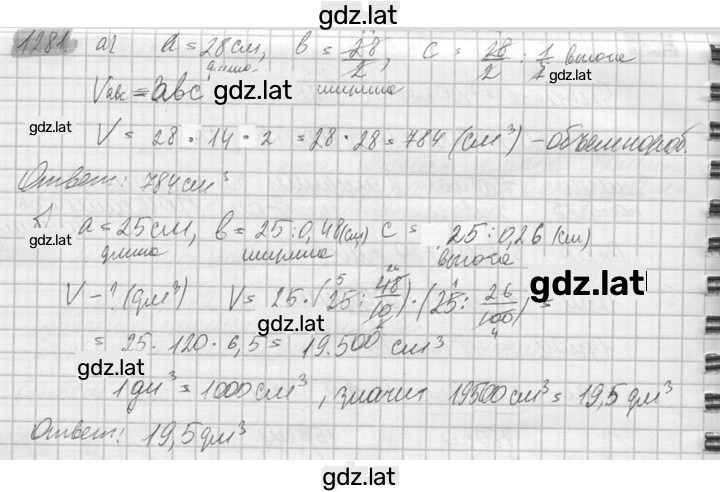 gdz.lat
1281. а) a = 28 см, b = 28/2, c = 28/2 : 1/7 высота
длина ширина gdz.lat
Vabc = abc gdz.lat
gdz.lat
V = 28 · 14 · 2 = 28 · 28 = 784 (см³) – объем
Ответ: 784 см³
б) a = 25 см, b = 25 : 0,48 (см) c = 25 : 0,26 (см)
gdz.lat длина ширина высота
gdz.lat
V – ? (дм³) V = 25 · (25 : 48/10) · (25 : 26/100) =
gdz.lat
= 25 · 120 · 6,5 = 19.500 см³
gdz.lat
1 дм³ = 1000 см³, значит 19500 см³ = 19,5 дм³
Ответ: 19,5 дм³
gdz.lat